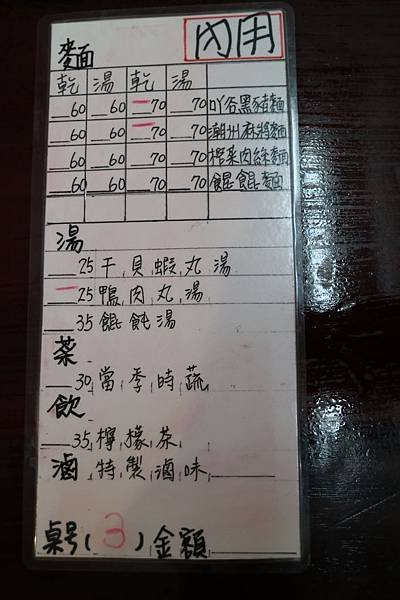 內用
麵
乾 湯 乾 湯
60 60 一70 70 叭谷黑豬麵
60 60 一70 70 潮州麻醬麵
60 60 70 70 榨菜肉絲麵
60 60 70 70 餛飩麵
湯
25 干貝蝦丸湯
一25 鴨肉丸湯
35 餛飩湯
菜
30 當季時蔬
飲
35 檸檬茶
滷 特製滷味
桌号(3)金額